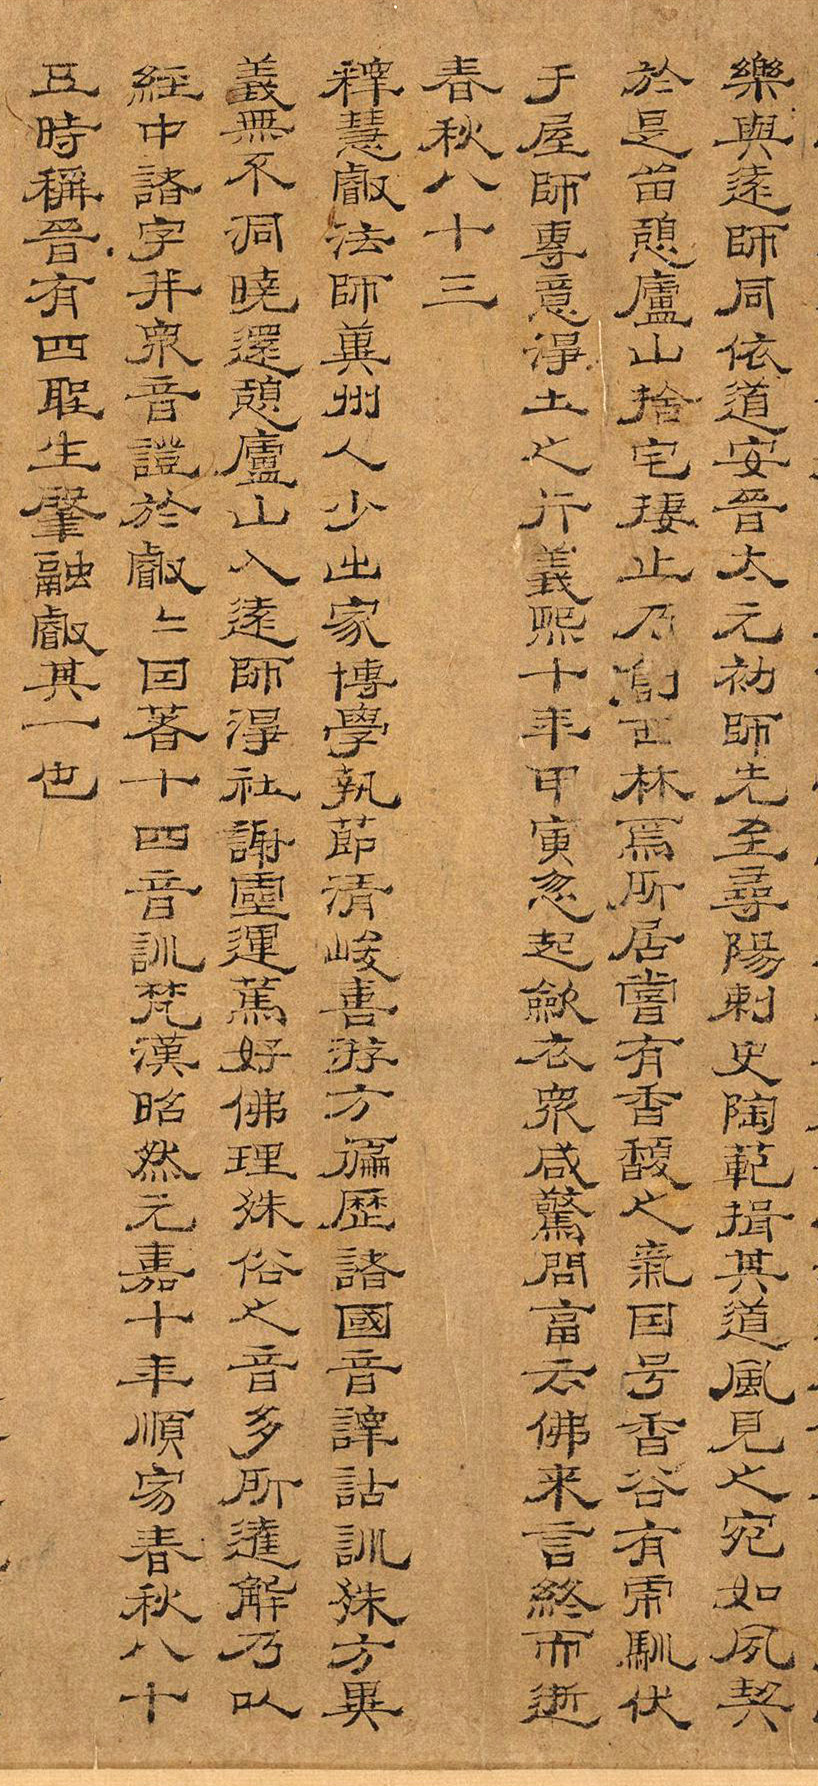 樂與遠師同依道安晉太元初師先至尋陽刺史陶範揖其道風見之宛如夙契
於是留憩廬山捨宅捿止乃創西林爲所居嘗有香馥之氣因号香谷有虎馴伏
于屋師專意淨土之行義熙十年甲寅忽起斂衣衆咸驚問當云佛来言終而逝
春秋八十三
釋慧叡法師冀州人少出家博學執節清峻喜游方徧歷諸國音譯詁訓殊方異
義無不洞曉還憩廬山入遠師淨社謝靈運篤好佛理殊俗之音多所達解乃以
經中諸字并衆音證於叡〻因著十四音訓梵漢昭然元嘉十年順寂春秋八十
五時稱晉有四聖生肇融叡其一也